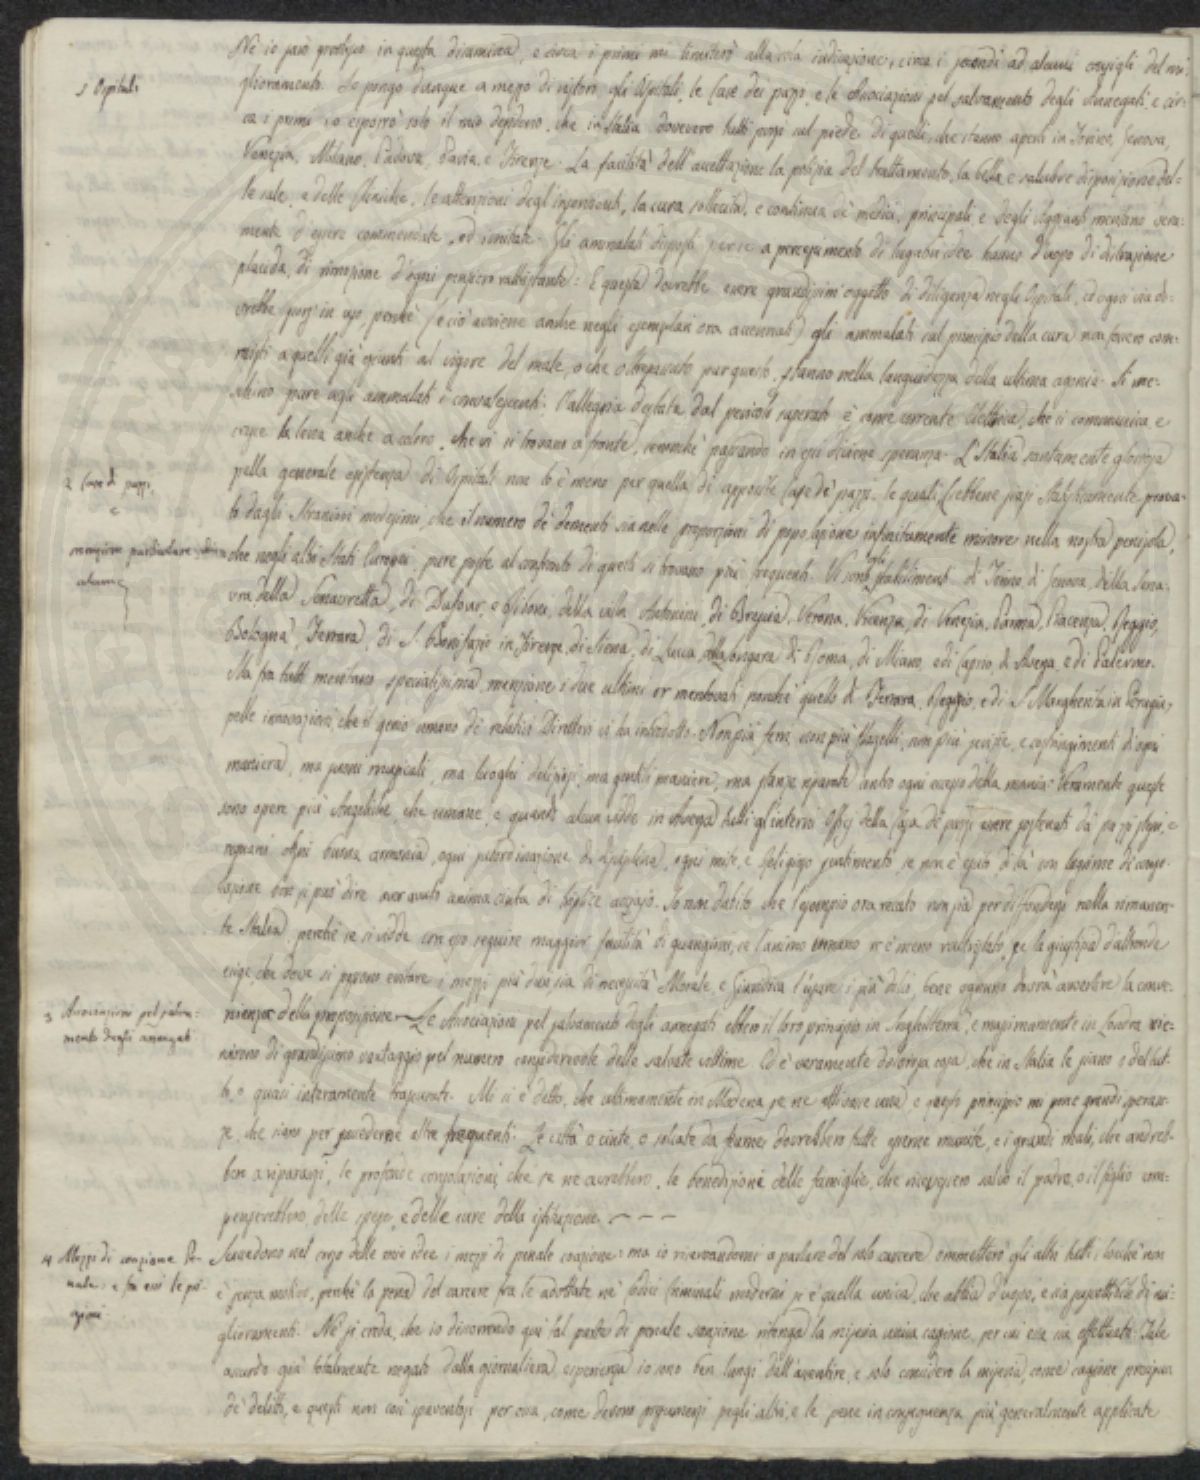 Nè io sarò prolisso in questa disamina, e circa i primi mi limiterò alla sola indicazione, circa i secondi ad alcuni consigli del mi-
1 Ospitali
glioramento. Io pongo dunque a mezzo di ristoro gli Ospitali, le Case dei pazzi, e le Associazioni pel salvamento degli Annegati, e cir-
ca i primi io esporrò solo il mio desiderio, che in Italia dovessero tutti porsi sul piede di quelli, che stanno aperti in Torino, Genova,
Venezia, Milano, Padova, Pavia, e Firenze. La facilità dell'accettazione la pulizia del trattamento, la bella e salubre disposizione del-
le sale, e delle Cliniche, le attenzioni degli inservienti, la cura sollecita, e continua de' medici, principali e degli Aggiunti meritano vera-
mente d'essere commendate, ed imitate. Gli ammalati disposti per se a percepimento di lugubri idee hanno d'uopo di distrazione
placida, di rimozione d'ogni pensiero rattristante: E questa dovrebbe essere grandissim'oggetto di diligenza negli Ospitali, ed ogni via do-
vrebbe porsi in uso, perchè (se ciò avviene anche negli esemplari ora accennati) gli ammalati sul principio della cura non fossero com-
misti a quelli già giunti al vigore del male, o che oltrepassato pur questo, stanno nella languidezza della ultima agonia. Si me-
scolino pure agli ammalati i convalescenti: l'allegria destata dal pericolo superato è come corrente elettrica, che si comunica e
cresce la lena anche a coloro, che vi si trovano a fronte, sennonchè passando in essi diviene speranza. L'Italia santamente gloriosa
2 Case di pazzi,
pella generale esistenza di Ospitali non lo è meno per quella di apposite Case de' pazzi, le quali (sebbene siasi statisticamente prova-
to dagli Stranieri medesimi, che il numero de' dementi sia nelle proporzioni di popolazione infinitamente minore nella nostra penisola,
e
menzione particolare di
alcune
che negli altri Stati Europei, pure poste al confronto di questi si trovano più frequenti. Vi sono gli stabilimenti di Torino di Genova, della Sena-
vra della Senavretta, di Dufour, e Ridoni, della villa Antonini, di Brescia, Verona, Vicenza, di Venezia, Parma, Piacenza, Reggio,
Bologna, Ferrara, di S. Bonifazio in Firenze, di Siena, di Lucca, alla longara di Roma, di Miano, e di Capino, di Aversa, e di Palermo.
Ma fra tutti meritano specialissima menzione i due ultimi or mentovati nonchè quello di Ferrara, Reggio, e di S. Margherita in Perugia,
pelle innovazioni, che il genio umano de' relativi Direttori vi ha introdotto. Non più ferri, non più flagelli, non più sevizie, e costringimenti d'ogni
maniera, ma suoni musicali, ma luoghi deliziosi, ma gentili maniere, ma stanze riparate contro ogni eccesso della mania. Veramente queste
sono opere più Angeliche, che umane, e quando alcun vidde in Aversa tutti gl'interni Offici della Casa de' pazzi essere sostenuti da' pazzi stessi, e
regnarvi ogni buona armonia, ogni subordinazione di disciplina, ogni mite, e religioso sentimento se non è escito di là con lagrime di conso-
lazione ben si può dire aver avuto anima cinta di triplice acciajo. Io non dubito che l'esempio ora recato non sia per diffondersi nella rimanen-
te Italia, perchè se si vidde con esso seguire maggior facilità di guarigioni, se l'animo umano n'è meno rattristato, se la giustizia d'altronde
esige, che dove si possono evitare i mezzi più duri, sia di necessità Morale, e Giuridica l'usare i più dolci, bene ognuno dovrà avvertire la conve-
3 Associazioni pel salva-
mento degli annegati
nienza della proposizione — Le Associazioni pel salvamento degli annegati ebber il loro principio in Inghilterra, e massimamente in Londra rie-
scirono di grandissimo vantaggio pel numero considerevole delle salvate vittime. Ed è veramente dolorosa cosa, che in Italia le siano o del tut-
to, o quasi interamente trascurate. Mi si è detto, che ultimamente in Modena se ne attivasse una, e questo principio mi pone grandi speran-
ze, che siano per succederne altre frequenti. Le città o cinte, o solcate da fiumi dovrebbero tutte esserne munite, e i grandi mali, che andreb-
bero a ripararsi, le profonde consolazioni, che se ne avrebbero, le benedizioni delle famiglie, che ricevessero salvo il padre, o il figlio com-
penserebbero delle spese, e delle cure della istituzione — — —
4 Mezzi di coazione Pe-
nale, e fra essi le pri-
gioni
Succedono nel corso delle mie idee i mezzi di penale coazione: ma io riservandomi a parlare del solo carcere ommetterò gli altri tutti, locchè non
è senza motivo, perchè la pena del carcere fra le adottate ne' Codici Criminali moderni, si è quella unica, che abbia d'uopo, e sia suscettibile di mi-
glioramenti. Nè si creda, che io discorrendo qui sul punto di penale sanzione ritenga la miseria unica cagione, per cui essa sia effettuata. Tale
assurdo già totalmente negato dalla giornaliera esperienza io sono ben lungi dall'asserire, e solo considero la miseria, come cagione precipua
de' delitti, e questi non così spaventosi per essa, come devono presumersi pegli altri, e le pene in conseguenza più generalmente applicate